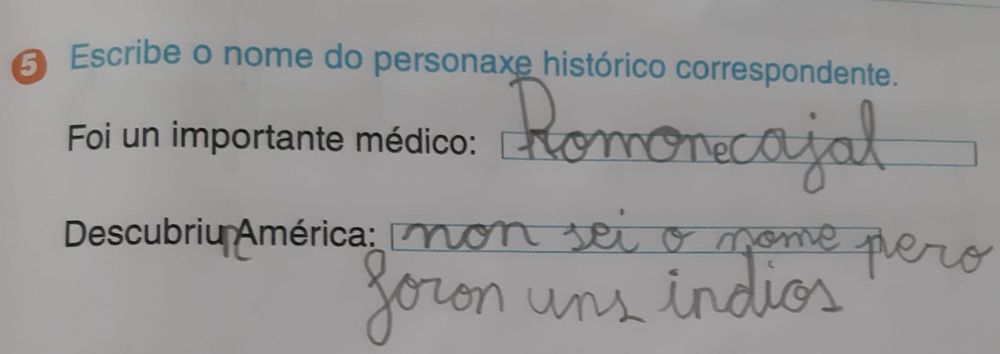 5 Escribe o nome do personaxe histórico correspondente.
Foi un importante médico: Ramonecajal
Descubriun América: non sei o nome pero
foron uns indios